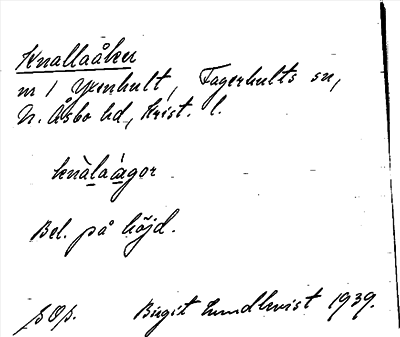 Knallaåker
nr 1 Yxenhult, Fagerhults sn,
N. Åsbo hd, Krist. l.
knàlaágor
Bel. på höjd.
Birgit Lundkvist 1939.